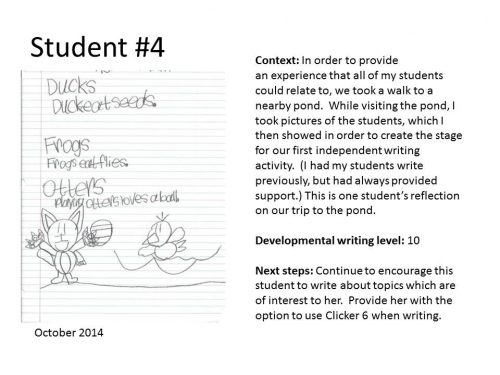 Student #4
Ducks
Duck eart seeds.
Frogs
Frogs eat flies.
Otters
playing otters loves a ball.
October 2014
Context: In order to provide
an experience that all of my students
could relate to, we took a walk to a
nearby pond. While visiting the pond, I
took pictures of the students, which I
then showed in order to create the stage
for our first independent writing
activity. (I had my students write
previously, but had always provided
support.) This is one student's reflection
on our trip to the pond.
Developmental writing level: 10
Next steps: Continue to encourage this
student to write about topics which are
of interest to her. Provide her with the
option to use Clicker 6 when writing.